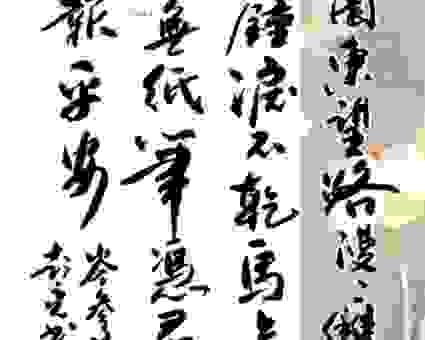 園東望路漫〻雙
鍾淚不乾馬上
無紙筆憑君
報平安
岑參